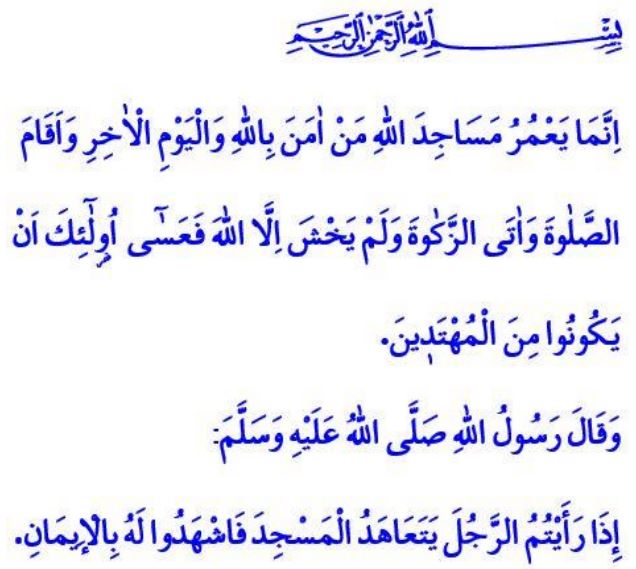 بِسْمِ اللهِ الرَّحْمٰنِ الرَّحِيمِ
اِنَّمَا يَعْمُرُ مَسَاجِدَ اللهِ مَنْ اٰمَنَ بِاللهِ وَالْيَوْمِ الْاٰخِرِ وَاَقَامَ
الصَّلٰوةَ وَاٰتَى الزَّكٰوةَ وَلَمْ يَخْشَ اِلَّا اللهَ فَعَسٰٓى اُو۬لٰٓئِكَ اَنْ
يَكُونُوا مِنَ الْمُهْتَد۪ينَ.
وَقَالَ رَسُولُ اللهِ صَلَّى اللهُ عَلَيْهِ وَسَلَّمَ:
إِذَا رَأَيْتُمُ الرَّجُلَ يَتَعَاهَدُ الْمَسْجِدَ فَاشْهَدُوا لَهُ بِالْإِيمَانِ.